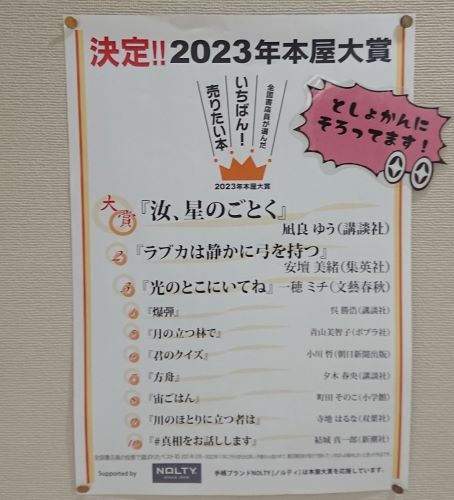 決定!! 2023年本屋大賞
全国書店員が選んだ
いちばん!
売りたい本
2023年本屋大賞
としょかんに
そろってます!
大賞『汝、星のごとく』
凪良 ゆう(講談社)
2『ラブカは静かに弓を持つ』
安壇 美緒(集英社)
3『光のとこにいてね』 一穂 ミチ(文藝春秋)
『爆弾』 呉 勝浩(講談社)
『月の立つ林で』 青山美智子(ポプラ社)
『君のクイズ』 小川 哲(朝日新聞出版)
『方舟』 夕木 春央(講談社)
『宙ごはん』 町田 そのこ(小学館)
『川のほとりに立つ者は』 寺地 はるな(双葉社)
10『#真相をお話しします』 結城 真一郎(新潮社)
Supported by NOLTY 手帳ブランドNOLTY[ノルティ]は本屋大賞を応援しています。